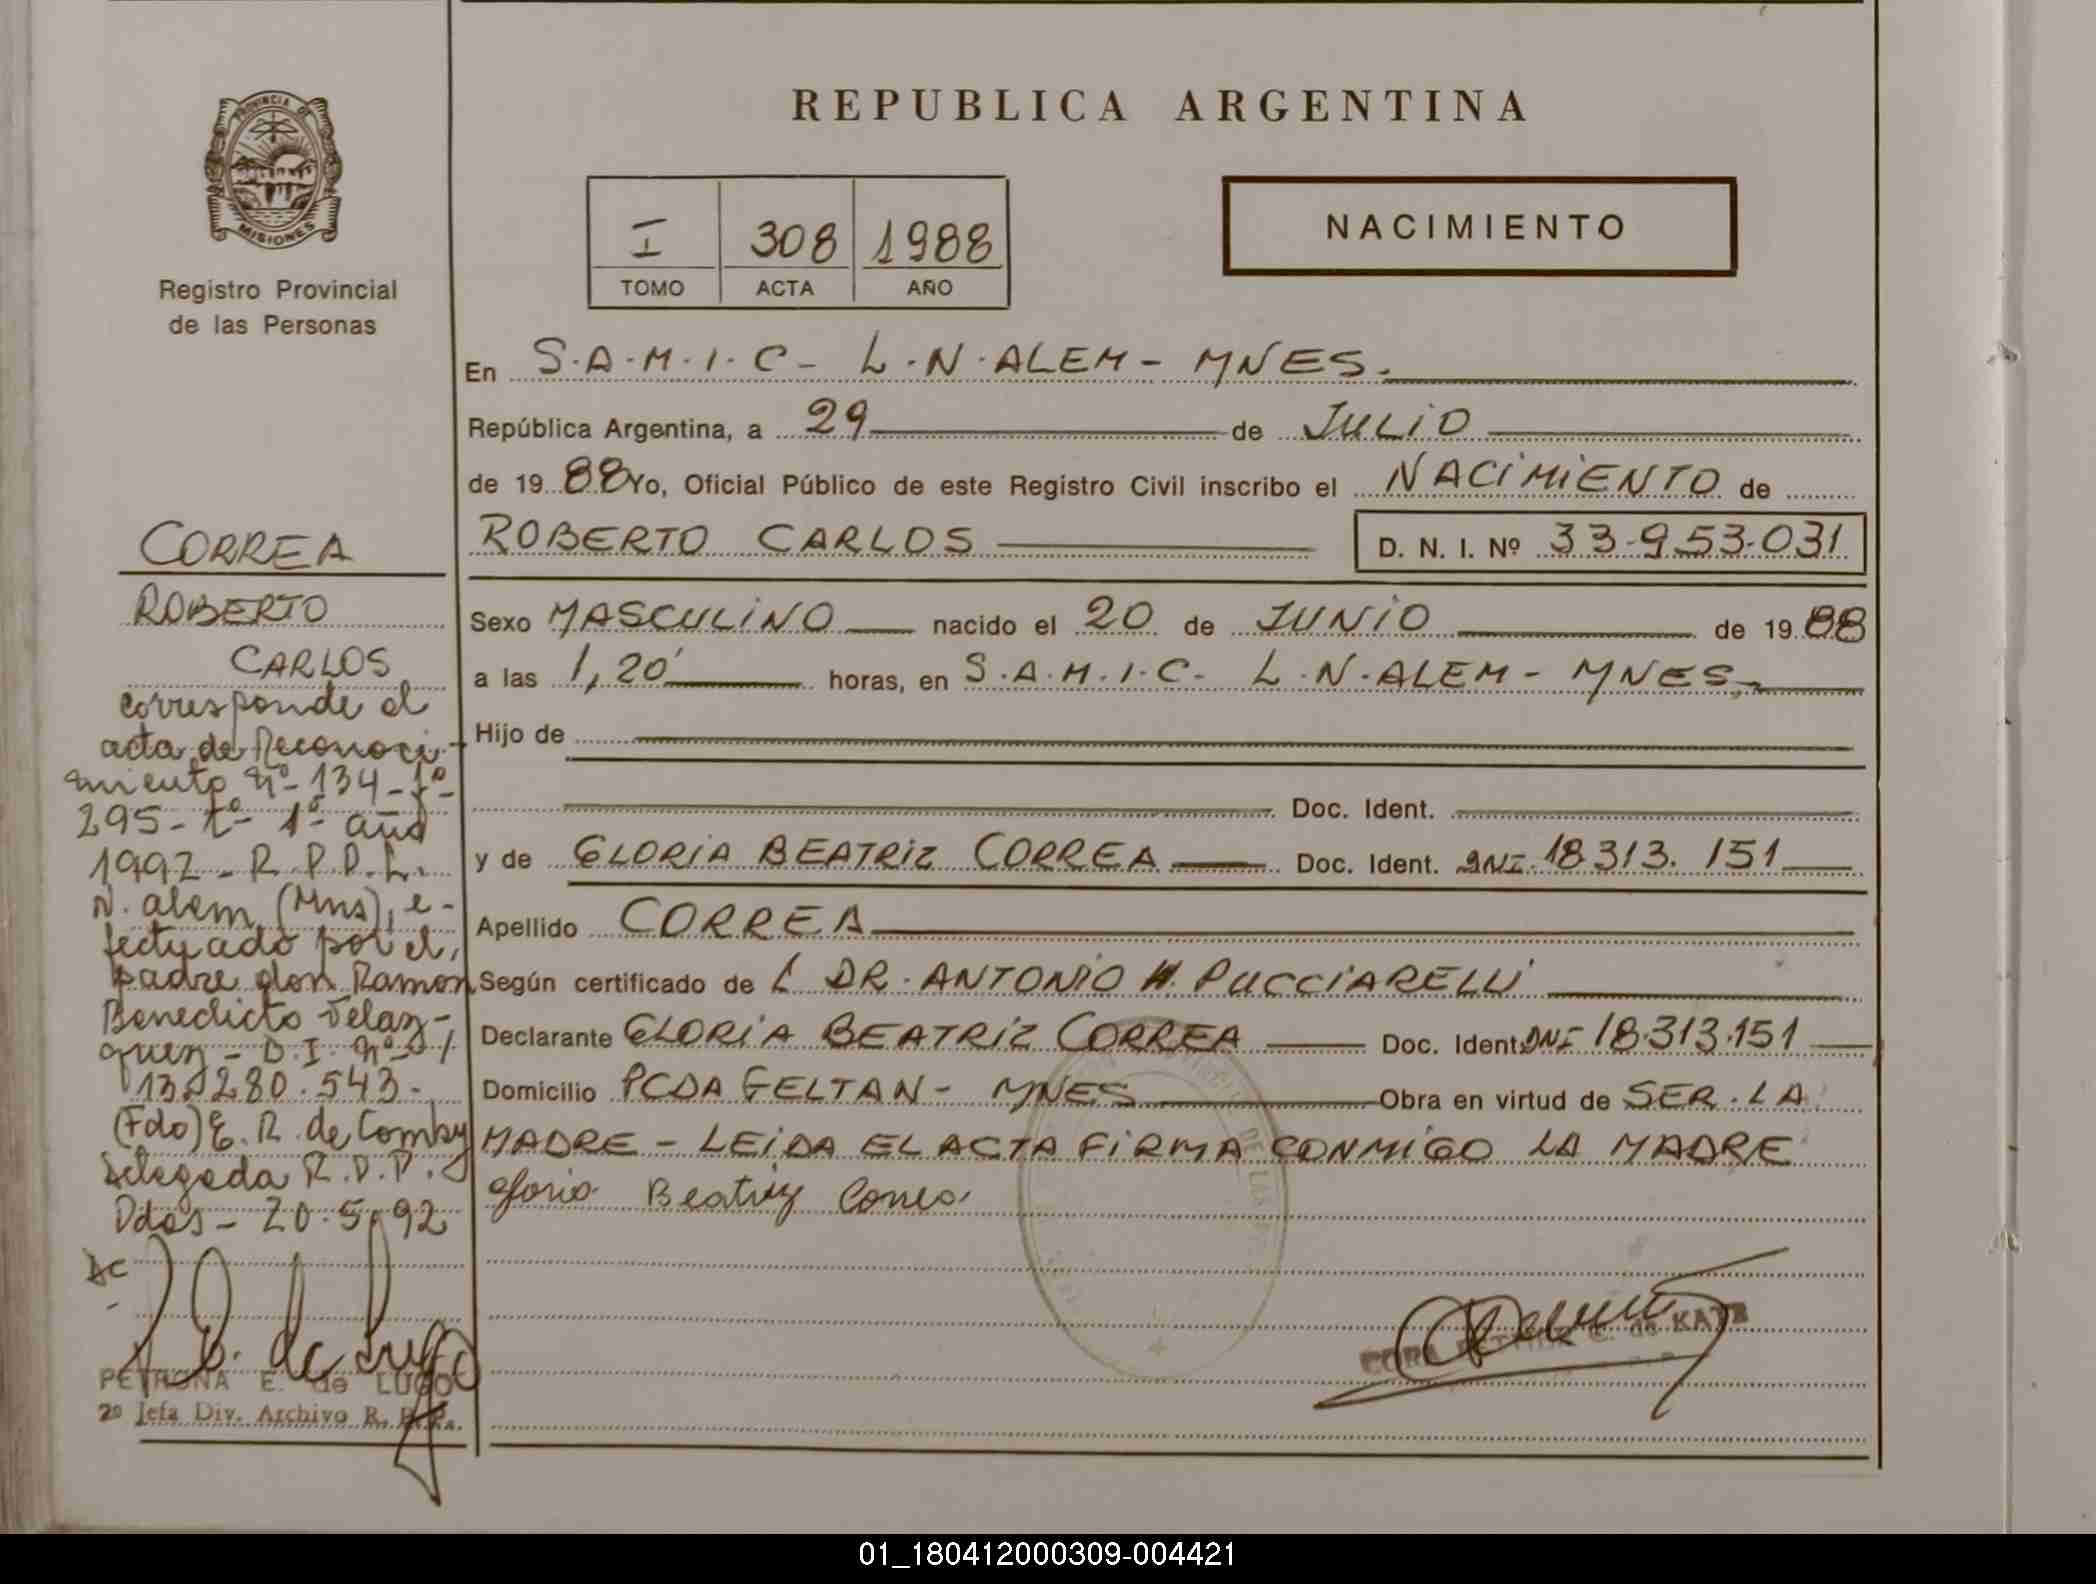 PROVINCIA DE
MISIONES
Registro Provincial
de las Personas
REPUBLICA ARGENTINA
I 308 1988
TOMO ACTA AÑO
NACIMIENTO
En S.A.M.I.C- L.N.ALEM- MNES.
República Argentina, a 29 de JULIO
de 19 88 Yo, Oficial Público de este Registro Civil inscribo el NACIMIENTO de
ROBERTO CARLOS D. N. I. Nº 33-953-031
Sexo MASCULINO nacido el 20 de JUNIO de 19 88
a las 1,20' horas, en S.A.M.I.C- L.N.ALEM- MNES.
Hijo de
Doc. Ident.
y de GLORIA BEATRIZ CORREA Doc. Ident. DNI. 18.313.151
Apellido CORREA
Según certificado de L DR. ANTONIO H. PUCCIARELLI
Declarante GLORIA BEATRIZ CORREA Doc. Ident. DNI 18.313.151
Domicilio PCDA GELTAN- MNES Obra en virtud de SER LA
MADRE - LEIDA EL ACTA FIRMA CONMIGO LA MADRE
Gloria Beatriz Correa
CORREA
ROBERTO
CARLOS
corresponde al
acta de Reconoci-
miento Nº-134-fº-
295-tº 1º año
1992- R.P.P.L.
N. alem (Mns), e-
fectuado por el
padre don Ramon
Benedicto Velaz-
quez- D.I. Nº-
13.280.543-
(Fdo) E. R. de Comby
Delegada R.P.P.
Pdas- 20.5.92
PETRONA E. de LUGO
2º Jefa Div. Archivo R. P. P.
de KATZ
01_180412000309-004421